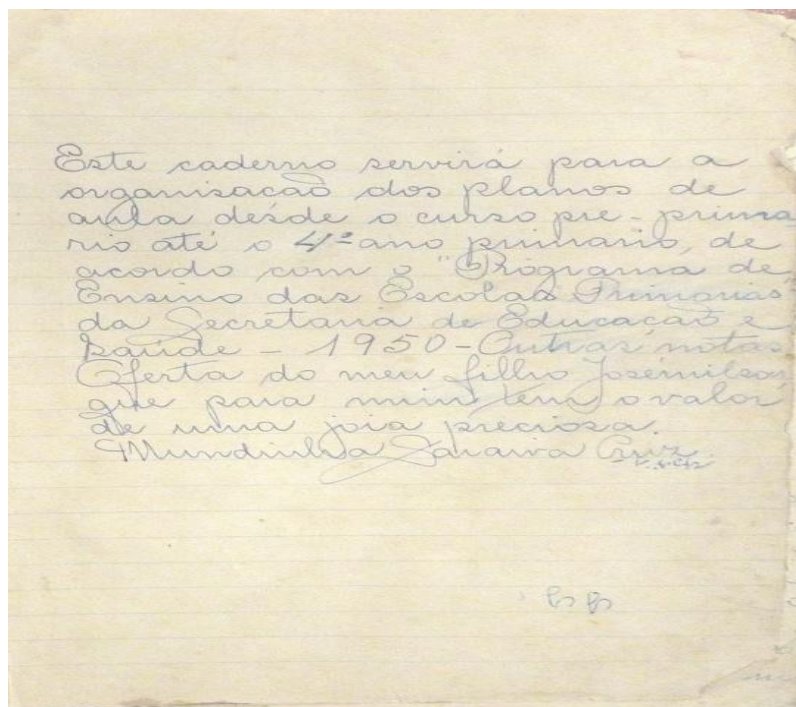 Este caderno servirá para a
organisação dos planos de
aula desde o curso pre-prima
rio até o 4º ano primario, de
acordo com o "Programa de
Ensino das Escolas Primarias
da Secretaria de Educação e
Saúde - 1950 - Outras notas
Oferta do meu filho Josemilson
que para mim tem o valor
de uma joia preciosa.
Mundinha Saraiva Cruz